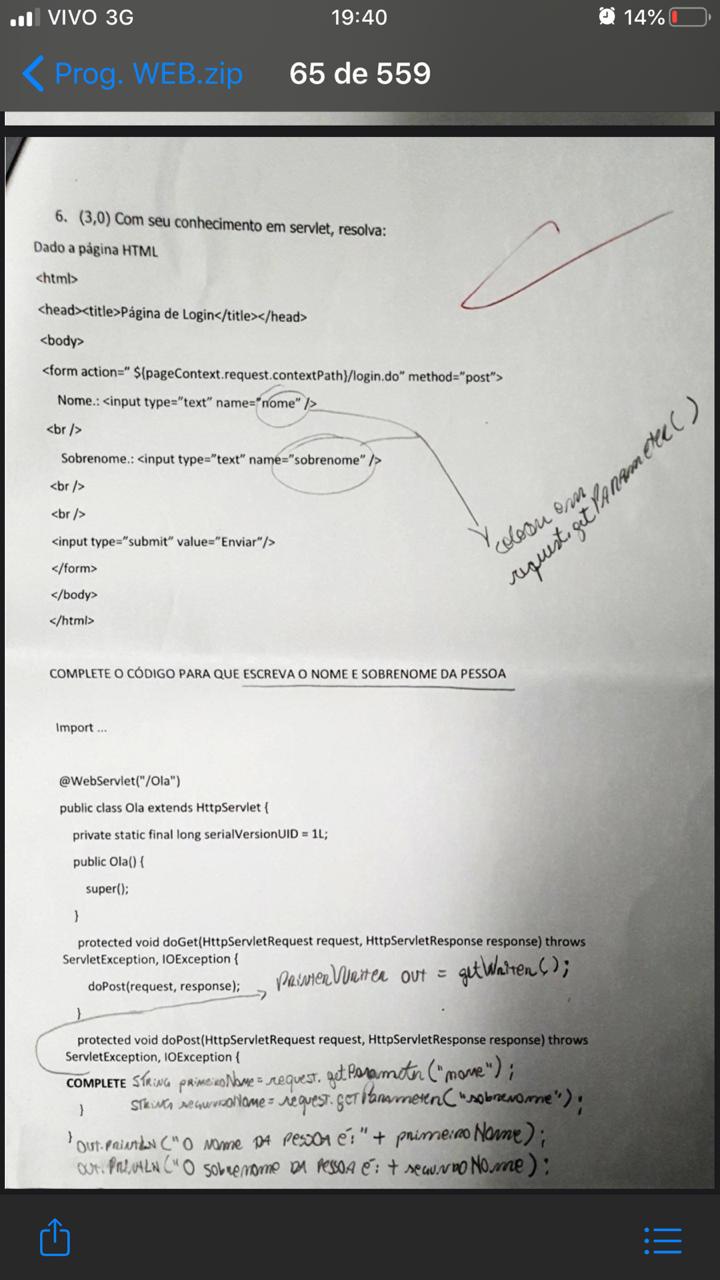 VIVO 3G 19:40 14%
Prog. WEB.zip 65 de 559
6. (3,0) Com seu conhecimento em servlet, resolva:
Dado a página HTML
<html>
<head><title>Página de Login</title></head>
<body>
<form action=" ${pageContext.request.contextPath}/login.do" method="post">
Nome.: <input type="text" name="nome" />
<br />
Sobrenome.: <input type="text" name="sobrenome" />
<br />
<br />
<input type="submit" value="Enviar"/>
</form>
</body>
</html>
request.getPARAmeter()
COMPLETE O CÓDIGO PARA QUE ESCREVA O NOME E SOBRENOME DA PESSOA
Import ...
@WebServlet("/Ola")
public class Ola extends HttpServlet {
private static final long serialVersionUID = 1L;
public Ola() {
super();
}
protected void doGet(HttpServletRequest request, HttpServletResponse response) throws
ServletException, IOException {
doPost(request, response); PrinterWriter out = getWriter();
}
protected void doPost(HttpServletRequest request, HttpServletResponse response) throws
ServletException, IOException {
COMPLETE String primeiroName = request.getParameter("nome");
} String segundoName = request.getParameter("sobrenome");
} out.println("O nome da pessoa é:" + primeiroName);
out.println("O sobrenome da pessoa é: + segundoNome);